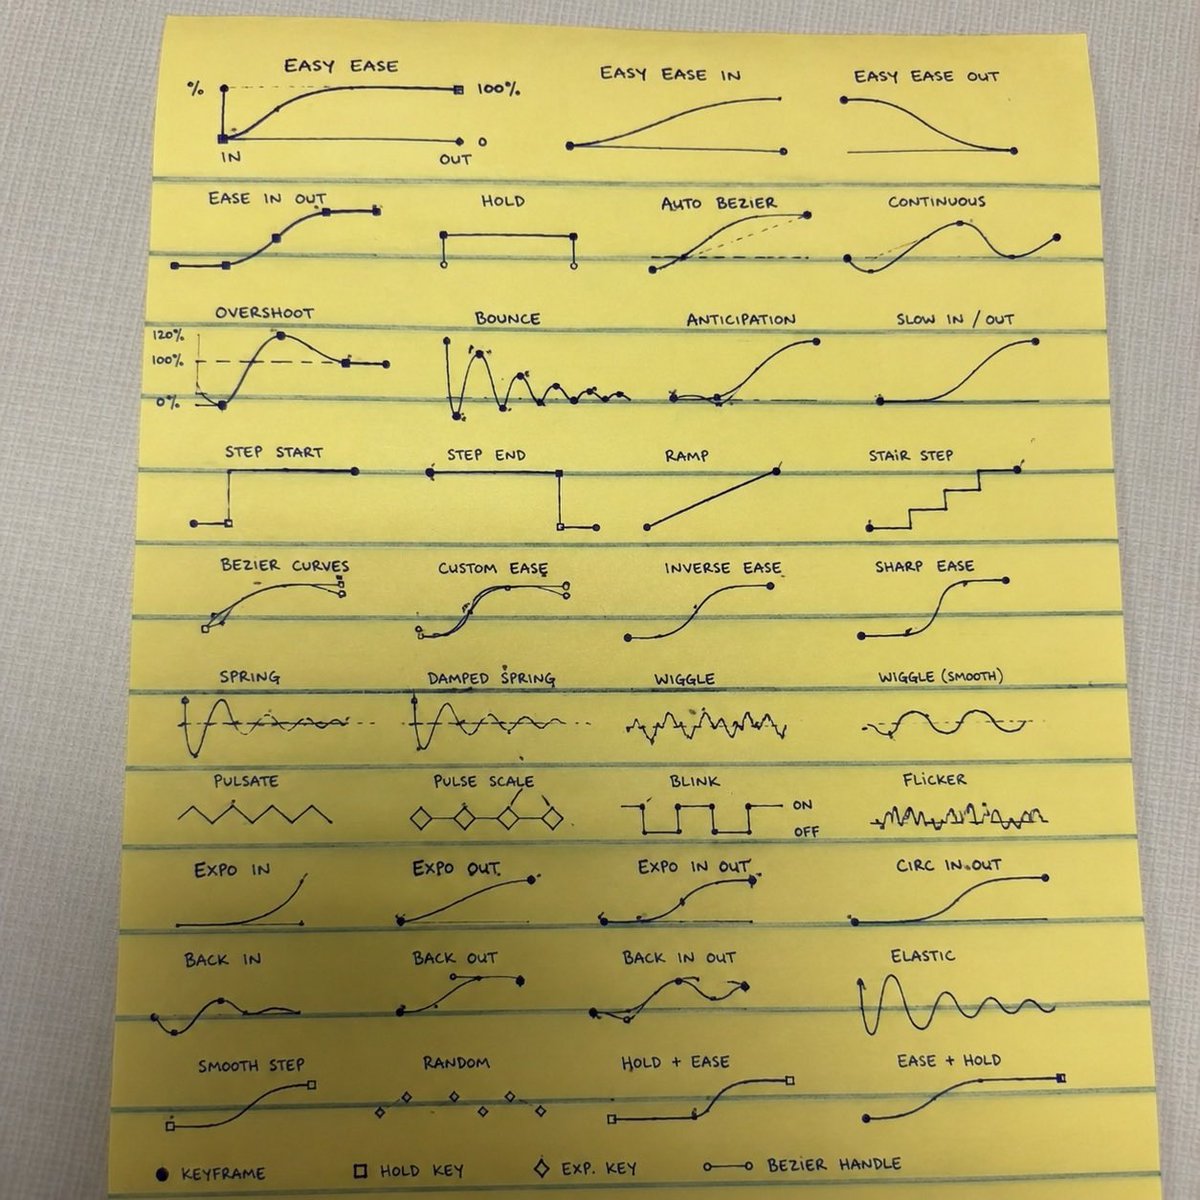 EASY EASE
EASY EASE IN
EASY EASE OUT
% 100%
0
IN OUT
EASE IN OUT
HOLD
AUTO BEZIER
CONTINUOUS
OVERSHOOT
120%
100%
0%
BOUNCE
ANTICIPATION
SLOW IN / OUT
STEP START
STEP END
RAMP
STAIR STEP
BEZIER CURVES
CUSTOM EASE
INVERSE EASE
SHARP EASE
SPRING
DAMPED SPRING
WIGGLE
WIGGLE (SMOOTH)
PULSATE
PULSE SCALE
BLINK
ON
OFF
FLICKER
EXPO IN
EXPO OUT
EXPO IN OUT
CIRC IN OUT
BACK IN
BACK OUT
BACK IN OUT
ELASTIC
SMOOTH STEP
RANDOM
HOLD + EASE
EASE + HOLD
KEYFRAME
HOLD KEY
EXP. KEY
BEZIER HANDLE